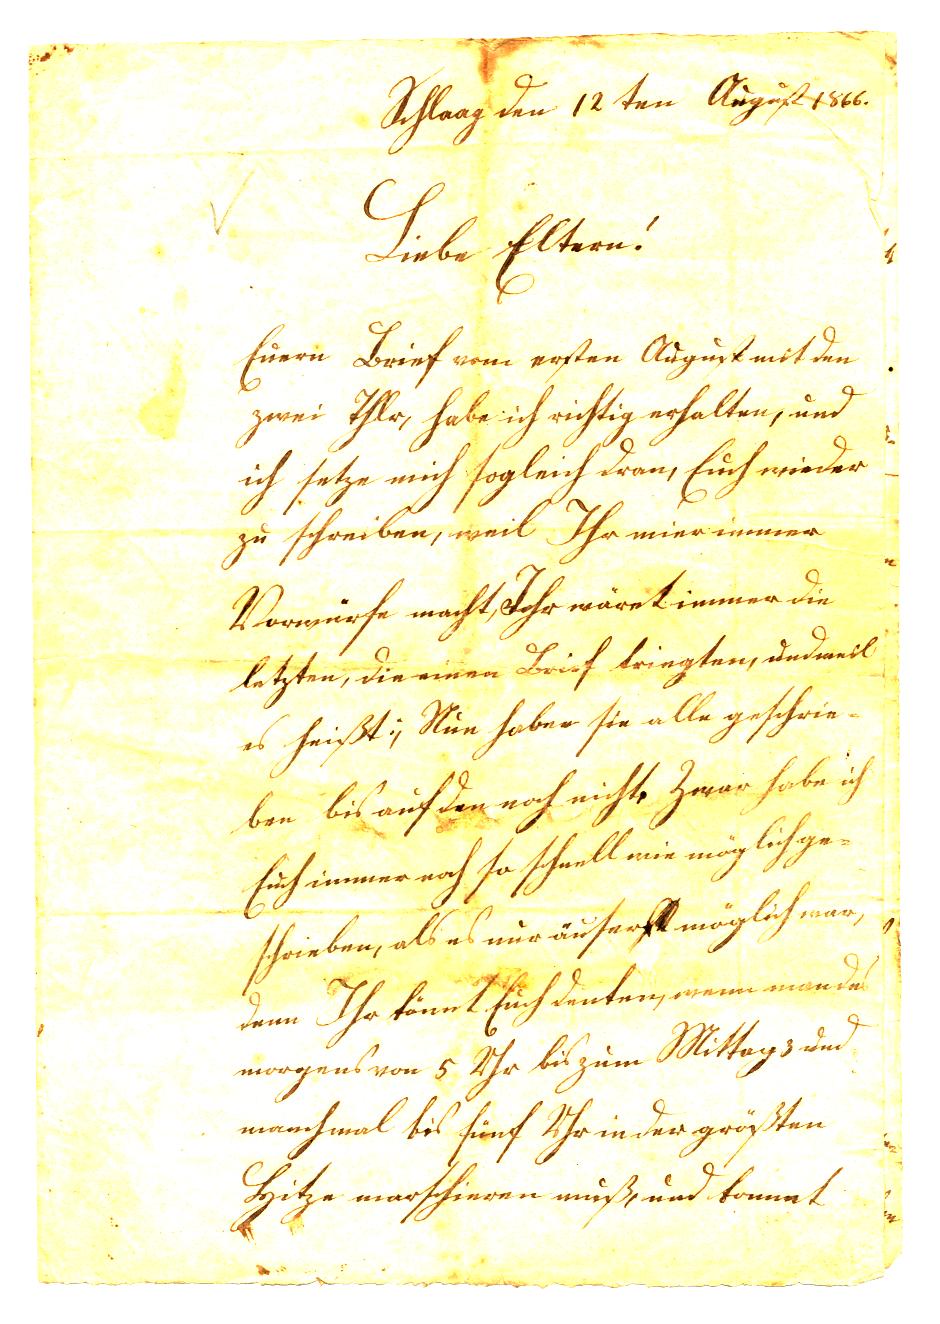 Schlaag den 12 ten August 1866.
Liebe Eltern!
Euern Brief vom ersten August mit den
zwei Thlr, habe ich richtig erhalten, und
ich setze mich sogleich dran, Euch wieder
zu schreiben, weil Ihr mier immer
Vorwürfe macht, Ihr wäret immer die
letzten, die einen Brief kriegten, und weil
es heißt:, Nun haben sie alle geschrie-
ben bis auf den noch nicht. Zwar habe ich
Euch immer noch so schnell wie möglich ge-
schrieben, als es nur äuserst möglich war,
denn Ihr könnt Euch denken, wenn man des
morgens von 5 Uhr bis zum Mittag 3 und
manchmal bis fünf Uhr in der größten
Hitze marschieren muß, und kommt